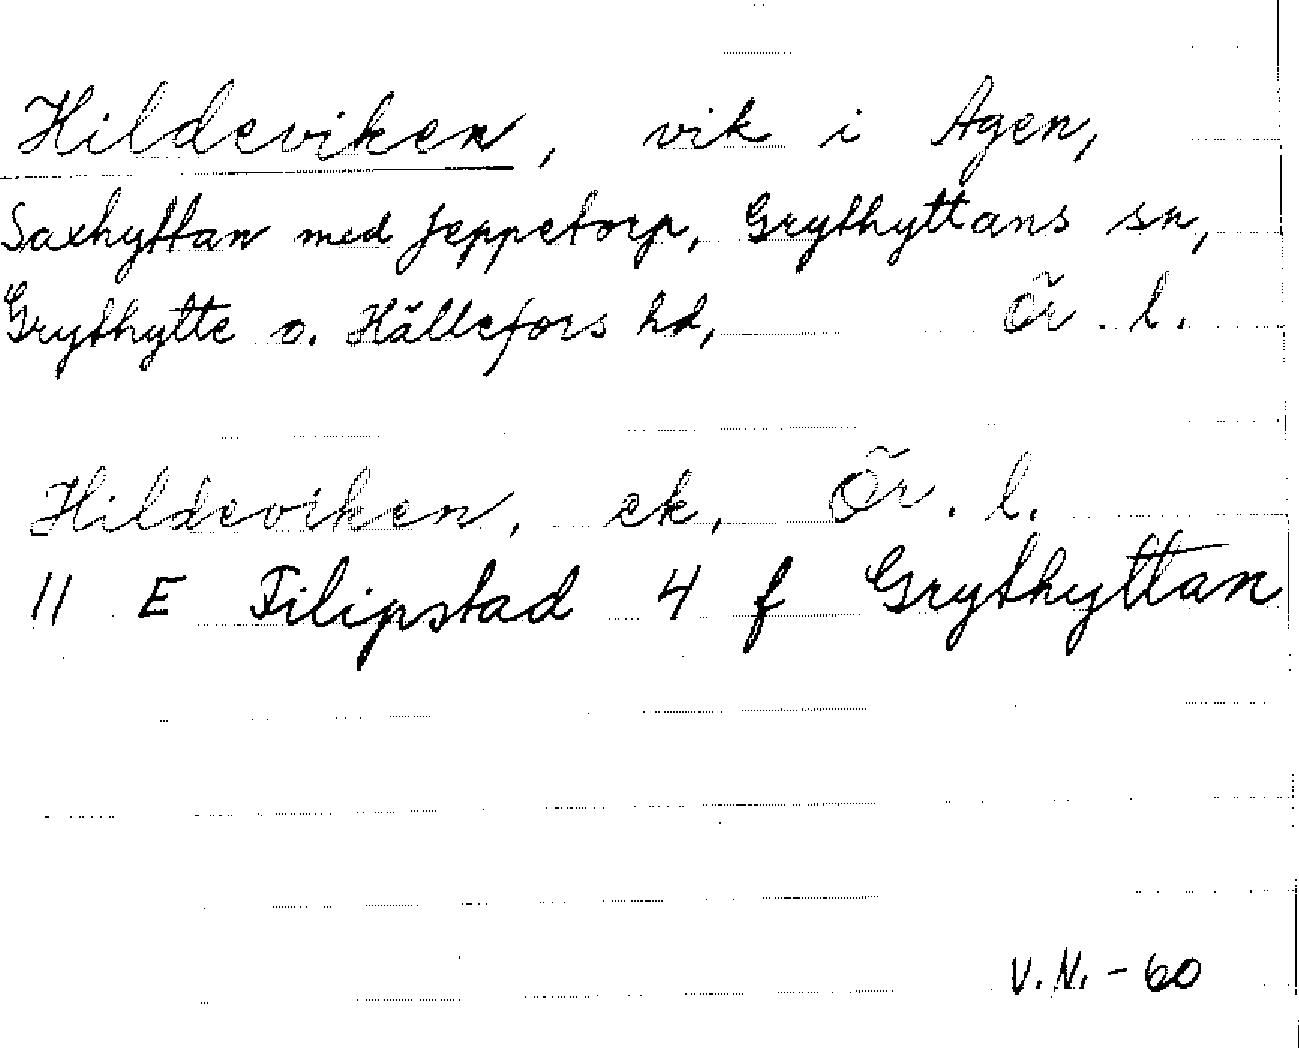 Hildeviken, vik i Agen,
Saxhyttan med Jeppetorp, Grythyttans sn,
Grythytte o. Hällefors hd, Ör. l.
Hildeviken, ek, Ör. l.
11 E Filipstad 4 f Grythyttan
V.N. - 60